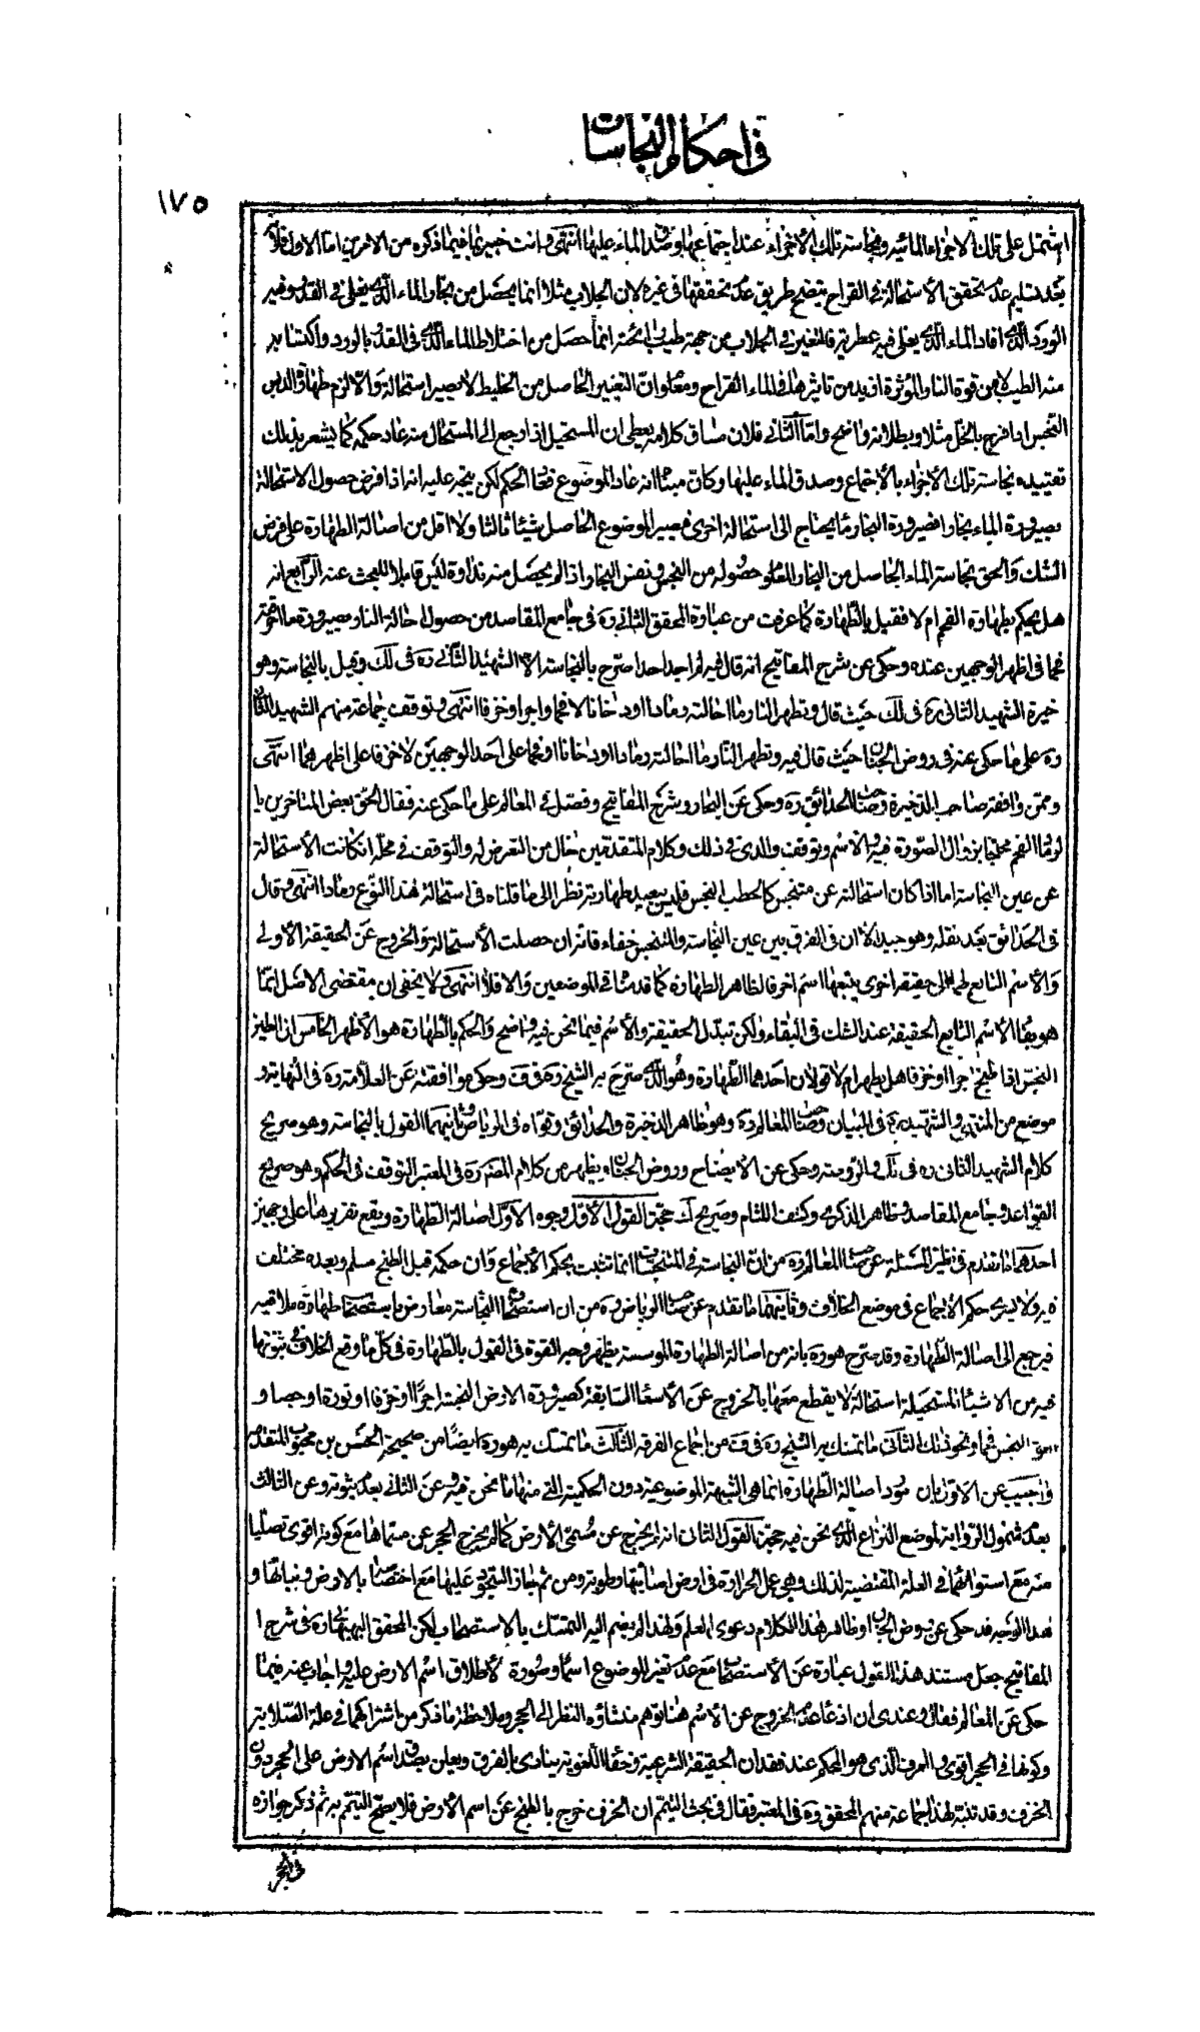 في احكام النجاسات
١٧٥
اشتمل على تلك الاجزاء المائية ونجاسة تلك الأجزاء عند اجتماعها وصدق الماء عليها انتهى وانت خبير بما فيما ذكره من الامرين اما الاول فلأنه
بعد تسليم عدم تحقق الأستحالة في القراح يتضح طريق عدم تحققها في غيره لان الجلاب مثلا انما يحصل من بخار الماء الذي يغلى في القدر وفيه
الورد الذي افاد الماء الذي يغلى فيه عطرية فالتغير في الجلاب من جهة طيب رائحته انما حصل من اختلاط الماء الذي في القدر بالورد واكتسابه
منه الطيب لا من قوة النار المؤثرة ازيد من تاثيرها في الماء القراح ومعلوم انّ التغيير الحاصل من الخليط لا يصير استحالة وَالّا لزم طهارة الدبس
النجس اذا مزج بالخل مثلا وبطلانه واضح وامّا الثاني فلان مساق كلامه يعطى ان المستحيل اذا رجع الى المستحال منه عاد حكمه كما يشعر بذلك
تقييده نجاسة تلك الأجزاء بالأجتماع وصدق الماء عليها وكان مبناه انه عاد الموضوع فعاد الحكم لكن يتجه عليه انه اذا فرض حصول الاستحالة
بصيرورة الماء بخارا فصيرورة البخار ماء يحتاج الى استحالة اخرى فيصير الموضوع الحاصل شيئا ثالثا ولا اقل من اصالة الطهارة على فرض
الشك وَالحق نجاسة الماء الحاصل من البخار المعلوم حصوله من النجس ونفس البخار اذا لم يحصل منه نداوة ليَس قابلا للبحث عنه الرّابع انه
هل يحكم بطهارة الفحم ام لا فقيل بالطّهارة كما عرفت من عبارة المحقق الثاني ره في جامع المقاصد من حصول احالة النار بصيرورة ما احرقته
فحما في اظهر الوجهين عنده وحكى عن شرح المفاتيح انه قال فيه لم اجد احدا صرّح بالنجاسة الا الشهيد الثّاني ره في لك وقيل بالنجاسة وهو
خيرة الشهيد الثاني ره في لك حيَث قال وتطهر النار ما احالته رمادا او دخانا لا فحما واجرا وخزفا انتهى وتوقف جماعة منهم الشهيد الثاني
ره على ما حكى عنه في روض الجنان حيث قال فيه وتطهر النّار ما احالته رمادا او دخانا او فحما على احَد الوجهين لا خزفا على اظهرهما انتهى
وممّن وافقه صاحب الذخيرة وصاحب الحدائق ره وحكى عَن البحار وشرح المفاتيح وفصّل في المعالم على ما حكى عنه فقال الحَق بعض المتاخرين با
لرماد الفحم محتجا بزوال الصّورة فيه والاسم وتوقف والدى في ذلك وكلام المتقدّمين خال من التعرض له والتوقف في محلّه ان كانت الأستحالة
عن عين النجاسة اما اذا كان استحالته عن متنجس كالحطب النجس فليس ببعيد طهارته نظرا الى ما قلناه في استحالة هٰذا النّوع رمادا انتهى وقال
في الحدائق بعَد نقله وهو جيد الّا ان في الفرق بين عين النّجاسة والمتنجس خفاء فانه ان حصلت الأستحالة وَالخروج عَن الحقيقة الأولى
وَالأسم التابع لها الى حقيقة اخرى يتبعها اسم اخر فالظاهر الطهارة كما قدمنا في الموضعين وَالّا فلا انتهى ولا يخفى ان مقتضى الاصل انّما
هو بقاء الاسم التابع للحقيقة عند الشك في البقاء ولكن تبدّل الحقيقة والأسم فيما نحن فيه واضح والحكم بالطّهارة هو الأظهر الخامس ان الطين
النجس اذا طبخ اجرا او خزفا هل يطهر ام لا قولان احدهما الطّهارة وهو الذي صَرّح به الشيخ ره في ف وحكى موافقته عَن العلّامة ره في النهاية و
موضع من المنتهى والشّهيد ره في البيان وصاحب المعالم ره وهو ظاهر الذخيرة والحدائق وقوّاه في الرياض وثانيهما القول بالنجاسة وهو صريح
كلام الشهيد الثاني ره في لك والرّوضة وحكى عن الايضاح وروض الجنان ويظهر من كلام المصنّف ره في المعتبر التوقف في الحكم وهو صريح
القواعد وجامع المقاصد وظاهر الذكرى وكشف اللثام وصَريح لك حجّة القول الأوّل وجوه الأوّل اصالة الطّهارة ويقع تقريرها على وجهين
احدهما ما تقدم في نظير المسئلة عن صاحب المعالم ره من انّ النجاسة في المتنجسات انما تثبت بحكم الأجماع وَان حكمه قبل الطبخ مسلم وبعده مختلف
فيه ولا يسرى حكم الاجماع في موضع الخلاف وثانيهما ما تقدم عن صاحب الرياض ره من ان استصحاب النجاسة معارض باستصحاب طهارة ملاقيه
فيرجع الى اصالة الطّهارة وقد صرح هو ره بانه من اصالة الطهارة الموسسة يظهر وجه القوة في القول بالطّهارة في كلّ ما وقع الخلاف في ثبوتها
فيه من الاشياء المستحيلة استحالة لا يقطع معها بالخروج عَن الأسماء السّابقة كصيرورة الارض النجسة اجرّا او خزفا او نورة او جصا و
العود النجس فحما ونحو ذلك الثاني ما تمسك به الشيخ ره في ف من اجماع الفرقة الثالث ما تمسك به هو ره ايضًا من صحيحة الحسن بن محبوب المتقدمة
واجيب عن الاوّل بان مورد اصالة الطّهارة انما هى الشبهة الموضوعية دون الحكمية التي منها ما نحن فيه وعَن الثاني بعدم ثبوته وعن الثالث
بعدم شمول الرّواية لموضع النزاع الّذي نحن فيه حجّة القول الثاني انه لم يخرج عن مُسمّى الأرض كما لم يخرج الحجر عن مسمّاها مع كونه اقوى تصلّبا
منه مَع استوائهما في العلة المقتضية لذلك وهى عمل الحرارة في ارض اصابتها رطوبة ومن ثم جاز السّجود عَليها مَع اختصاصه بالارض ونباتها و
هٰذا الوجه قد حكى عن روض الجنان وظاهر هٰذا الكلام دعوى العلم وَلهذا لم يضم اليه التمسّك بالاستصحاب لكن المحقق البهبهاني ره في شرح ا
المفاتيح جعل مستند هذا القول عبارة عَن الأستصحاب مَع عدم تغير الموضوع اسمًا وصورة لأطلاق اسم الارض عليه واجاب عنه فيما
حكى عَن المعالم فقال وعندى ان ادّعاء عدم الخروج عن الأسم هنا توهم منشاؤه النظر الى الحجر وملاحظة ما ذكر من اشتراكهما في علة الصّلابة
وكونها في الحجر اقوى والعرف الّذى هو المحكم عند فقدان الحقيقة الشرعية وخفاء اللغوية ينادى بالفرق ويعلن بصدق اسم الارض على الحجر دون
الخزف وقد تنبّه لهذا جماعة منهم المحقق ره في المعتبر فقال في بحث التيمّم ان الخزف خرج بالطبخ عَن اسم الأرض فلا يصحّ التيمّم به ثم ذكر جوازه
في الحجر